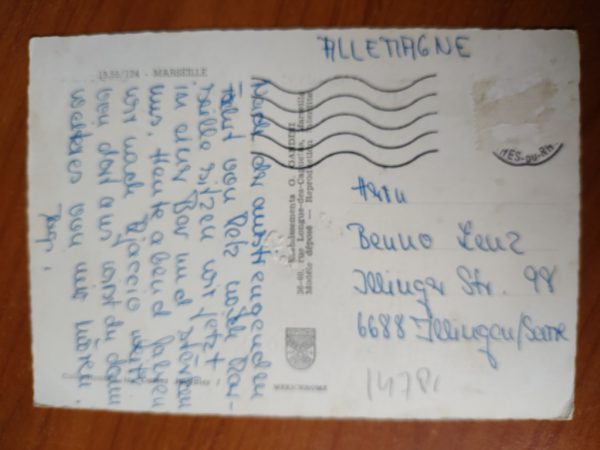 ALLEMAGNE
MARSEILLE
Nach der anstrengenden
Fahrt von nach Mar-
seille sitzen wir jetzt
in einer Bar und stärken
uns. Heute abend fahren
wir nach Ajaccio weiter
von dort aus wirst du dann
weiteres von mir hören.
Etablissements G. GANDINI
36-40, rue Longue-des-Capucins, Marseille
Modèle déposé — Reproduction interdite
ES-DU-RH
Herrn
Benno Lenz
Illinger Str. 98
6688 Illingen/Saar